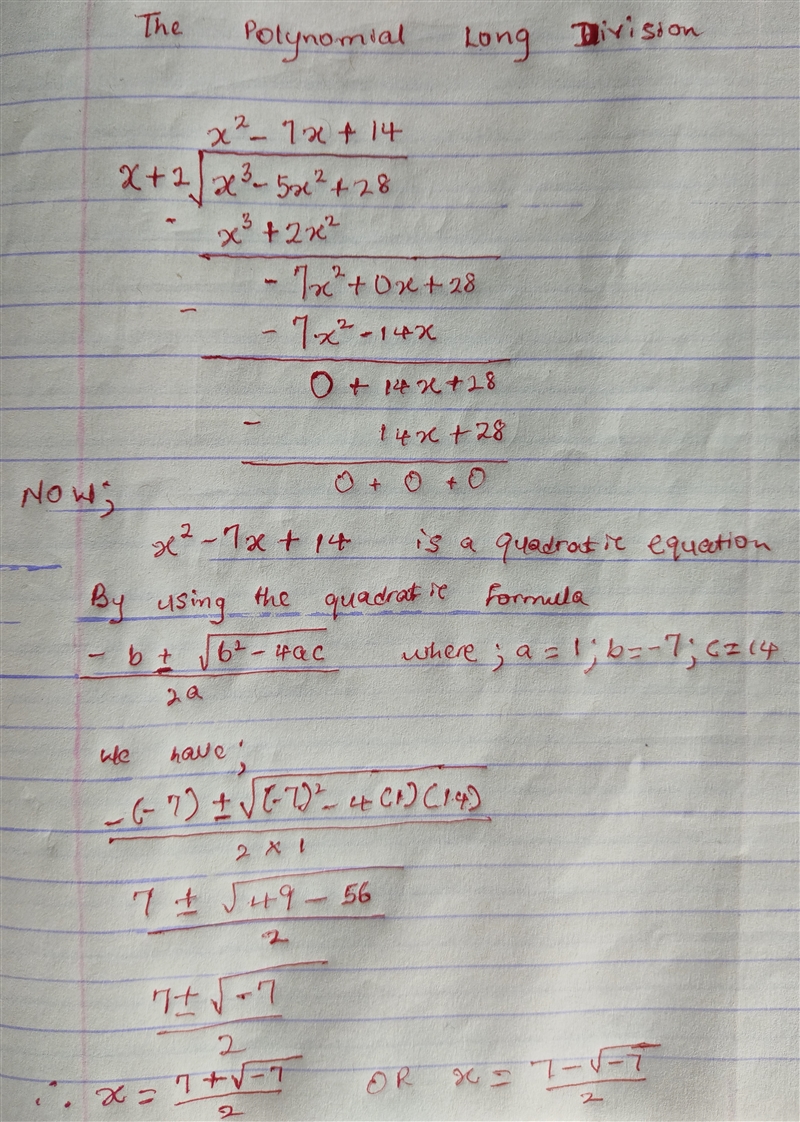 The Polynomial Long Division
x² - 7x + 14
x+2√x³ - 5x² + 28
- x³ + 2x²
- 7x² + 0x + 28
- - 7x² - 14x
0 + 14x + 28
- 14x + 28
0 + 0 + 0
NOW;
x² - 7x + 14 is a quadratic equation
By using the quadratic formula
- b ± √b² - 4ac where ; a = 1 ; b = -7 ; c = 14
2a
we have;
-(-7) ± √(-7)² - 4(1)(14)
2 × 1
7 ± √49 - 56
2
7 ± √-7
2
∴ x = 7 + √-7 OR x = 7 - √-7
2 2